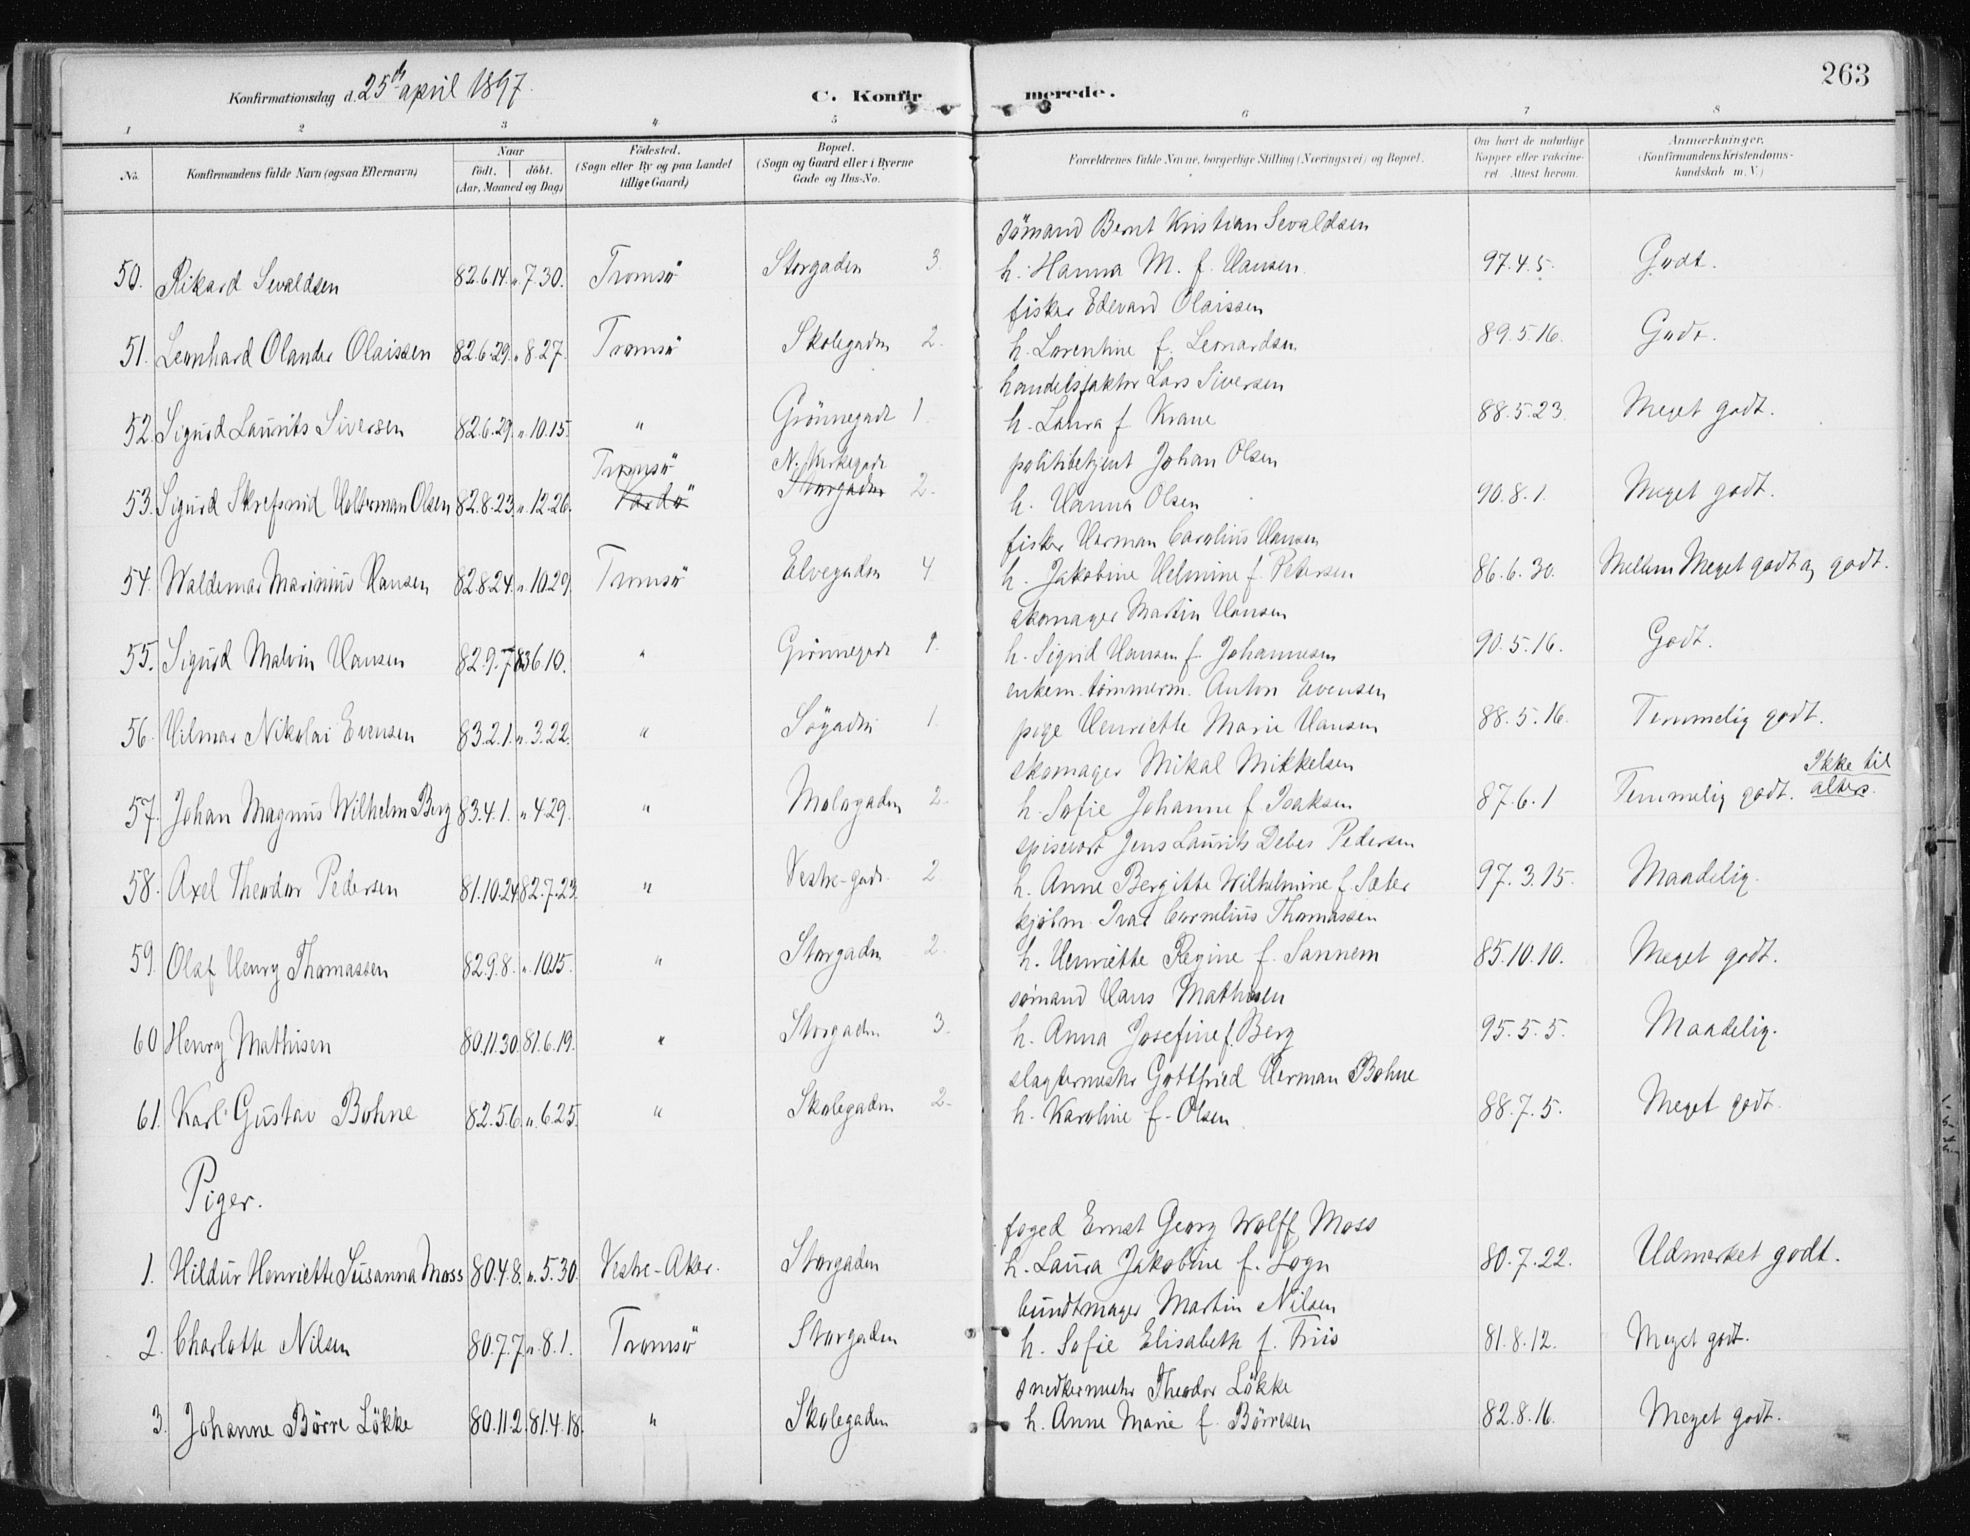 263
Konfirmationsdag d. 25de april 1897. C. Konfirmerede.
1 2 3 4 5 6 7 8
No. Konfirmandens fulde Navn (ogsaa Efternavn) Naar født. døbt. (Aar, Maaned og Dag) Fødested. (Sogn eller By og paa Landet tillige Gaard) Bopæl. (Sogn og Gaard eller i Byerne Gade og Hus-No. Forældrenes fulde Navne, borgerlige Stilling (Næringsvei) og Bopæl. Om havt de naturlige Kopper eller vakcineret. Attest herom. Anmærkninger. (Konfirmandens Kristendomskundskab m. V.)
sömand Bernt Kristian Sevaldsen
50. Rikard Sevaldsen 82.6.14. " 7.30. Tromsö Storgaden 3. h. Hanna M. f. Hansen 97.4.5. Godt.
fisker Edevard Olaissen
51. Leonhard Olander Olaissen 82.6.29. " 8.27. Tromsö Skolegaden 2. h. Lorentine f. Leonardsen 89.5.16. Godt.
handelsfaktor Lars Siversen
52. Sigurd Laurits Siversen 82.6.29. " 10.15. " Grönnegade 1. h. Laura f. Krane 88.5.23. Meget godt.
Tromsö N. Kirkegade politibetjent Johan Olsen
53. Sigurd Skrefsrud Volterman Olsen 82.8.23. " 12.26. Vardö Storgaden 2. h. Hanna Olsen 90.8.1. Meget godt.
fisker Herman Carolius Hansen
54. Waldemar Marinius Hansen 82.8.24. " 10.29. Tromsö Elvegaden 4 h. Jakobine Helmine f. Petersen 86.6.30. Mellem Meget godt og godt.
skomager Martin Hansen
55. Sigurd Malvin Hansen 82.9.7. 83.6.10. " Grönnegade h. Sigrid Hansen f. Johannesen 90.5.16. Godt.
enkem. tömmerm. Anton Evensen
56. Hilmar Nikolai Evensen 83.2.1. " 3.22. " Sögaden 1. pige Henriette Marie Hansen 88.5.16. Temmelig godt.
skomager Mikal Mikkelsen
57. Johan Magnus Wilhelm Berg 83.4.1. " 4.29. " Molagaden 2. h. Sofie Johanne f. Isaksen 87.6.1 Temmelig godt. Ikke til alters.
spisevert Jens Laurits Debes Pedersen
58. Axel Theodor Pedersen 81.10.24. 82.7.23. " Vestre-gade 2. h. Anne Bergitte Wilhelmine f. Sæter 97.3.15. Maadelig.
kjöbm. Ivar Cornelius Thomassen
59. Olaf Henry Thomassen 82.9.8. " 10.15. " Storgaden 2. h. Henriette Regine f. Sannem 85.10.10. Meget godt.
sömand Hans Mathisen
60 Henry Mathisen 80.11.30. 81.6.19. " Storgaden 3. h. Anna Josefine f. Berg 95.5.5. Maadelig.
slagtermester Gottfried Herman Bohne
61. Karl Gustav Bohne 82.5.6. " 6.25. " Skolegaden 2. h. Karoline f. Olsen 88.7.5. Meget godt.
Piger.
foged Ernst Georg Wolff Moss
1. Hildur Henriette Susanna Moss 80.4.8. " 5.30. Vestre-Aker. Storgaden h. Laura Jakobine f. Sogn 80.7.22. Udmerket godt.
buntmager Martin Nilsen
2. Charlotte Nilsen 80.7.7. " 8.1. Tromsö Storgaden h. Sofie Elisabeth f. Friis 81.8.12. Meget godt.
snedkermester Theodor Lökke
3. Johanne Börre Lökke 80.11.2. 81.4.18. " Skolegaden h. Anne Marie f. Börresen 82.8.16. Meget godt.